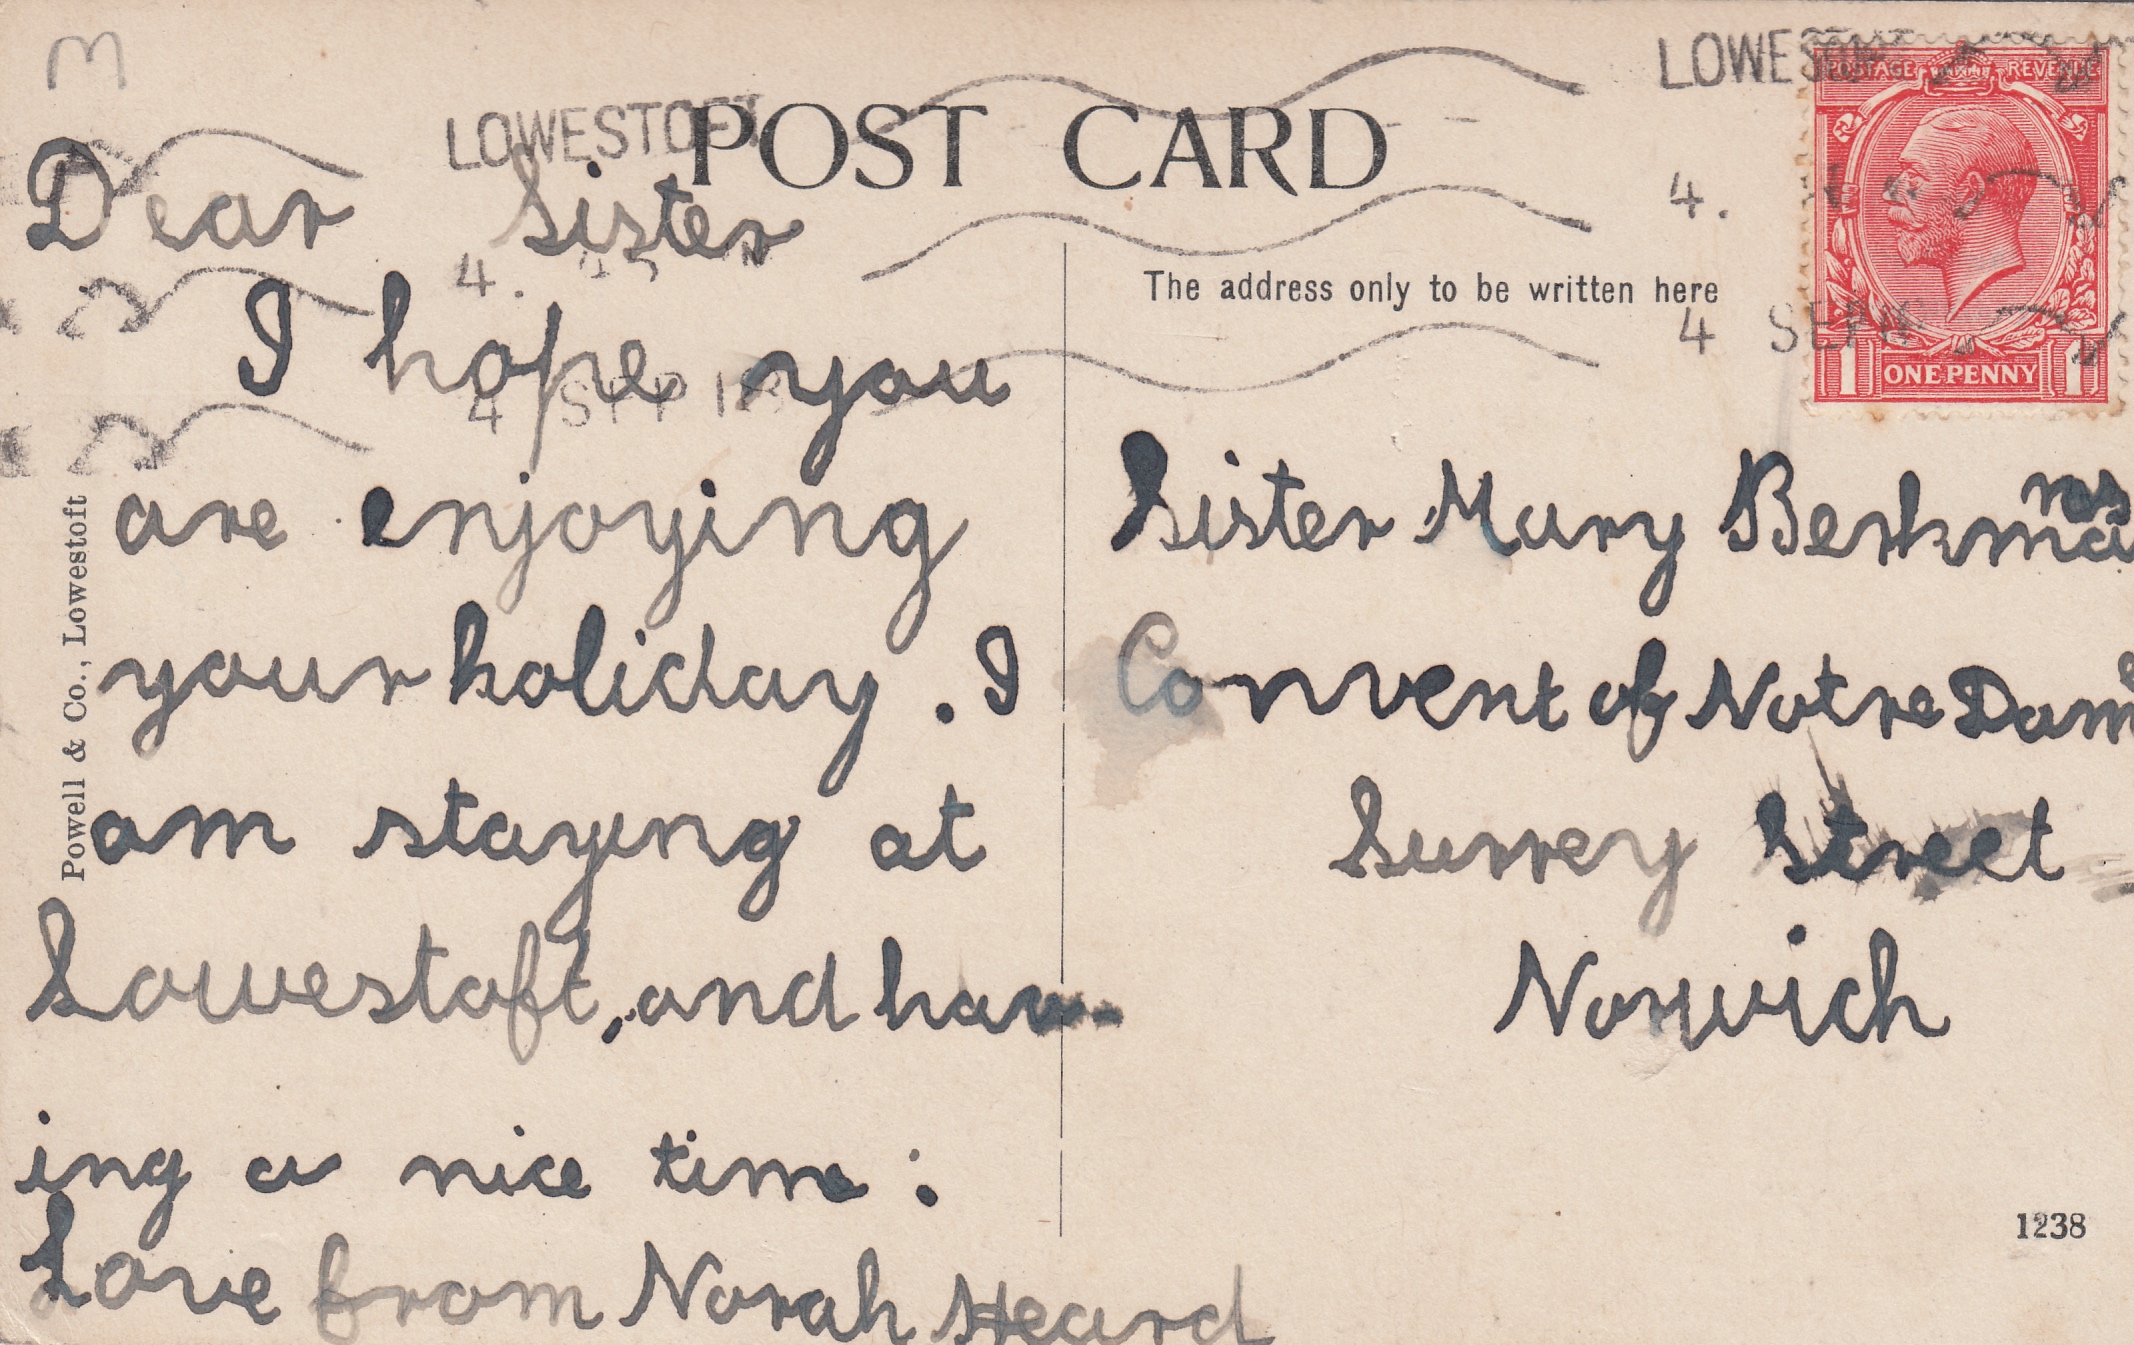 M
LOWESTOFT
LOWES
POST CARD
POSTAGE REVENUE
4.
4.
4 SEP
4 SEP 18
1 ONE PENNY 1
The address only to be written here
Dear Sister
I hope you
are enjoying
your holiday. I
am staying at
Lowestoft, and hav-
ing a nice time:
Love from Norah Heard
Sister Mary Berhmanes
Convent of Notre Dame
Surrey Street
Norwich
Powell & Co., Lowestoft
1238